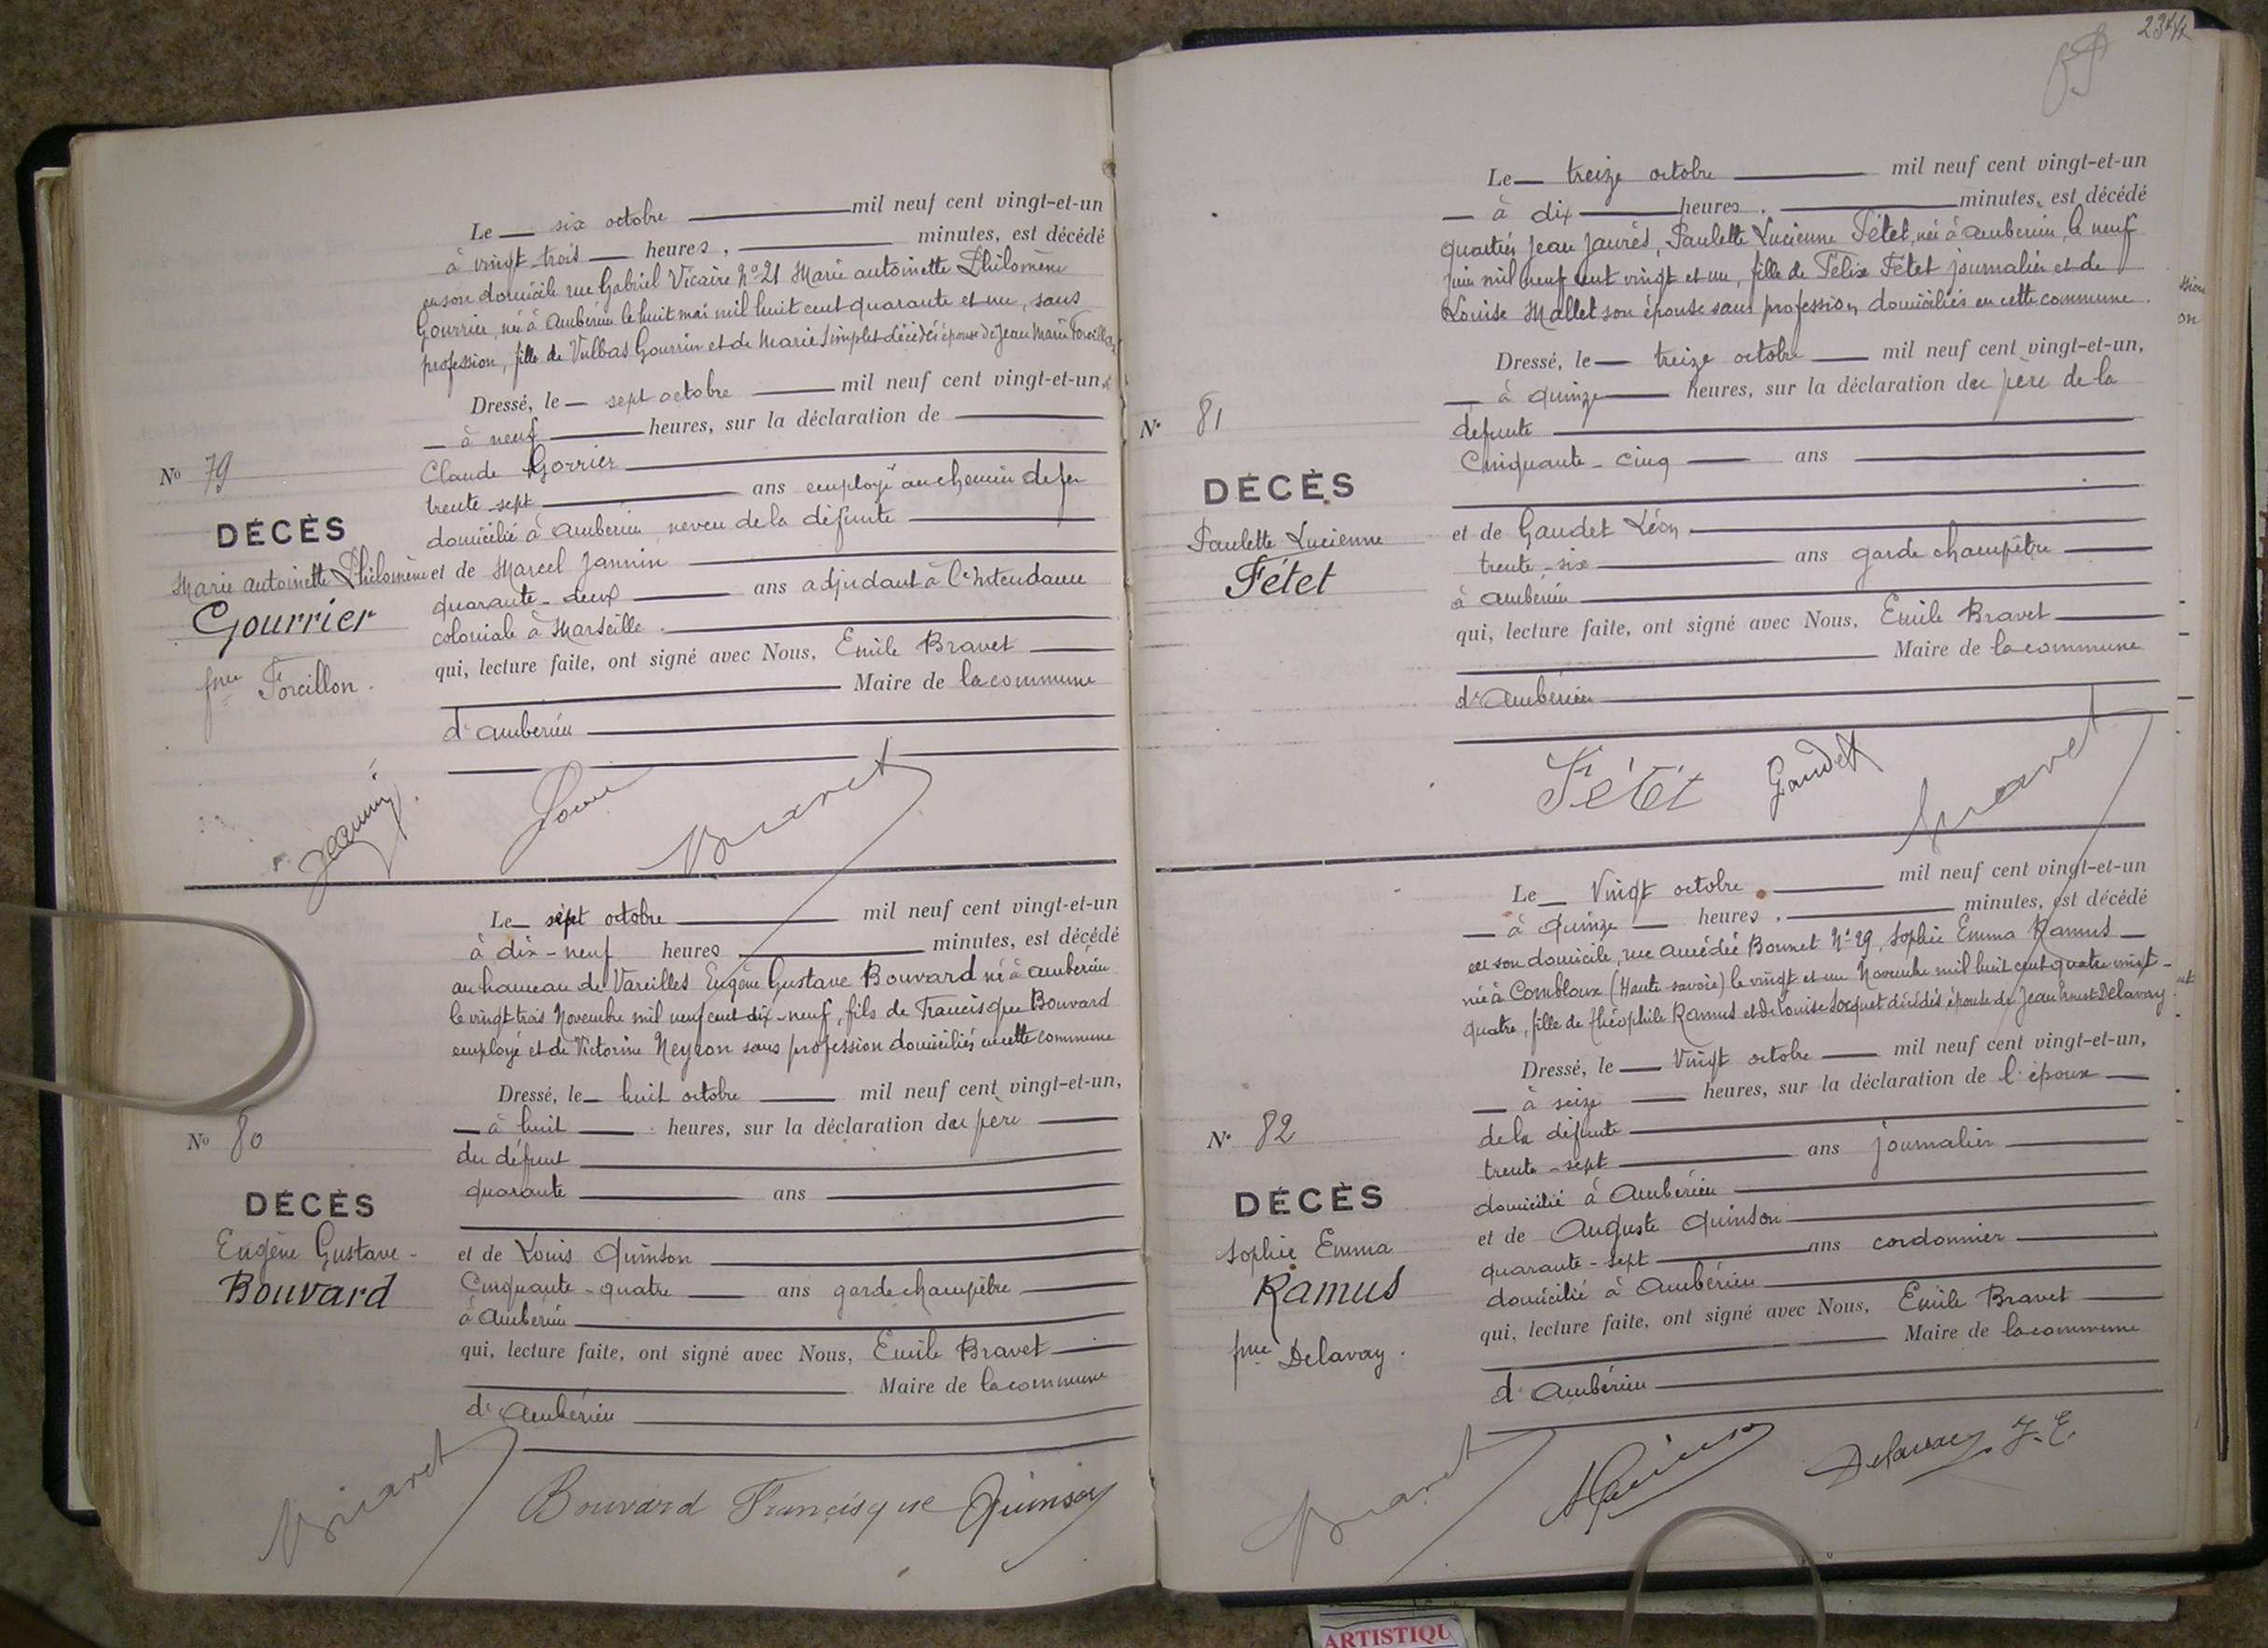 Le six octobre mil neuf cent vingt-et-un
à vingt-trois heures, minutes, est décédé
en son domicile rue Gabriel Vicaire Nº 21 Marie antoinette Philomène
Gourrier, née à Ambérieu le huit mai mil huit cent quarante et un, sans
profession, fille de Vulbas Gourrier et de Marie Simplet décédés épouse de Jean Marie Forcillon
Dressé, le sept octobre mil neuf cent vingt-et-un,
à neuf heures, sur la déclaration de
Claude Gorrier
trente-sept ans employé au chemin de fer
domicilié à Ambérieu neveu de la défunte
et de Marcel Jannin
quarante-deux ans adjudant à l'Intendance
coloniale à Marseille.
qui, lecture faite, ont signé avec Nous, Emile Bravet
Maire de la commune
d'Ambérieu
Nº 79
DÉCÈS
Marie antoinette Philomène
Gourrier
fme Forcillon.
Bravet
Le sept octobre mil neuf cent vingt-et-un
à dix-neuf heures minutes, est décédé
au hameau de Vareilles Eugène Gustave Bouvard né à Ambérieu
le vingt trois Novembre mil neuf cent dix-neuf, fils de Francisque Bouvard
employé et de Victorine Neyron sans profession domiciliés en cette commune
Dressé, le huit octobre mil neuf cent vingt-et-un,
à huit heures, sur la déclaration du père
du défunt
quarante ans
et de Louis Quinson
Cinquante-quatre ans garde champêtre
à Ambérieu
qui, lecture faite, ont signé avec Nous, Emile Bravet
Maire de la commune
d'Ambérieu
Nº 80
DÉCÈS
Eugène Gustave-
Bouvard
Bravet Bouvard Francisque Quinson
234
Le treize octobre mil neuf cent vingt-et-un
à dix heures, minutes, est décédé
quartier Jean Jaurès, Paulette Lucienne Fétet, née à Ambérieu, le neuf
juin mil neuf cent vingt et un, fille de Félix Fétet journalier et de
Louise Mallet son épouse sans profession domiciliés en cette commune.
Dressé, le treize octobre mil neuf cent vingt-et-un,
à quinze heures, sur la déclaration du père de la
defunte
Cinquante-cinq ans
et de Gaudet Léon
trente-six ans garde champêtre
à Ambérieu
qui, lecture faite, ont signé avec Nous, Emile Bravet
Maire de la commune
d'Ambérieu
Nº 81
DÉCÈS
Paulette Lucienne
Fétet
Fétét Gaudet Bravet
Le Vingt octobre mil neuf cent vingt-et-un
à Quinze heures, minutes, est décédé
en son domicile, rue Amédée Bonnet Nº 29, Sophie Emma Ramus
née à Combloux (Haute-savoie) le vingt et un Novembre mil huit cent quatre vingt-
quatre, fille de Théophile Ramus et de Louise Socquet décédés, épouse de Jean Ernest Delavay.
Dressé, le Vingt octobre mil neuf cent vingt-et-un,
à seize heures, sur la déclaration de l'époux
de la défunte
trente-sept ans journalier
domicilié à Ambérieu
et de Auguste Quinson
quarante-sept ans cordonnier
domicilié à Ambérieu
qui, lecture faite, ont signé avec Nous, Emile Bravet
Maire de la commune
d'Ambérieu
Nº 82
DÉCÈS
Sophie Emma
Ramus
fme Delavay.
Bravet Delavay J. E.
ARTISTIQU